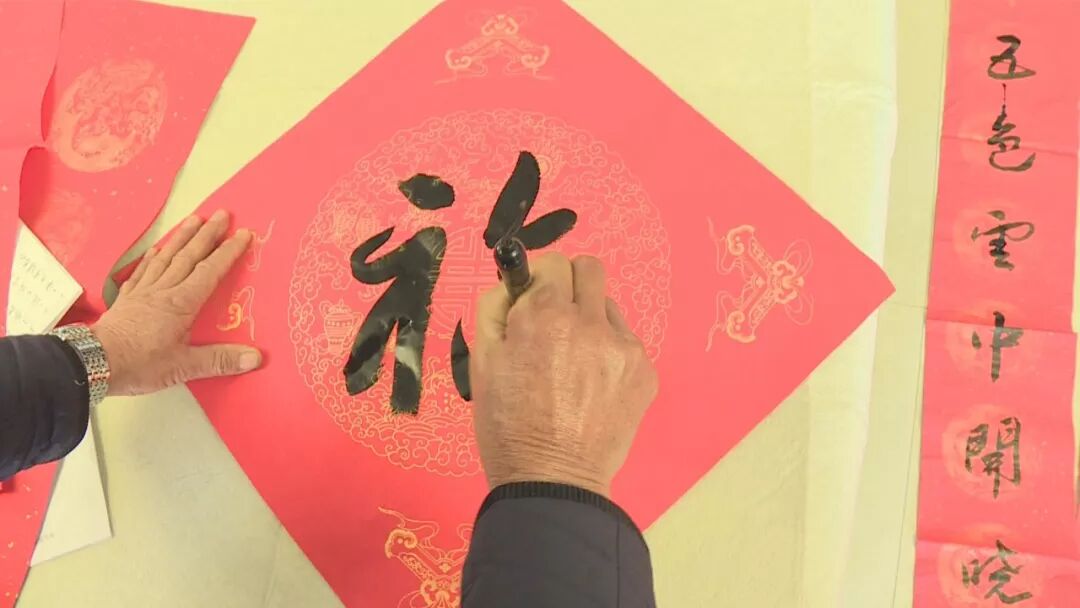 五色雲中開晓